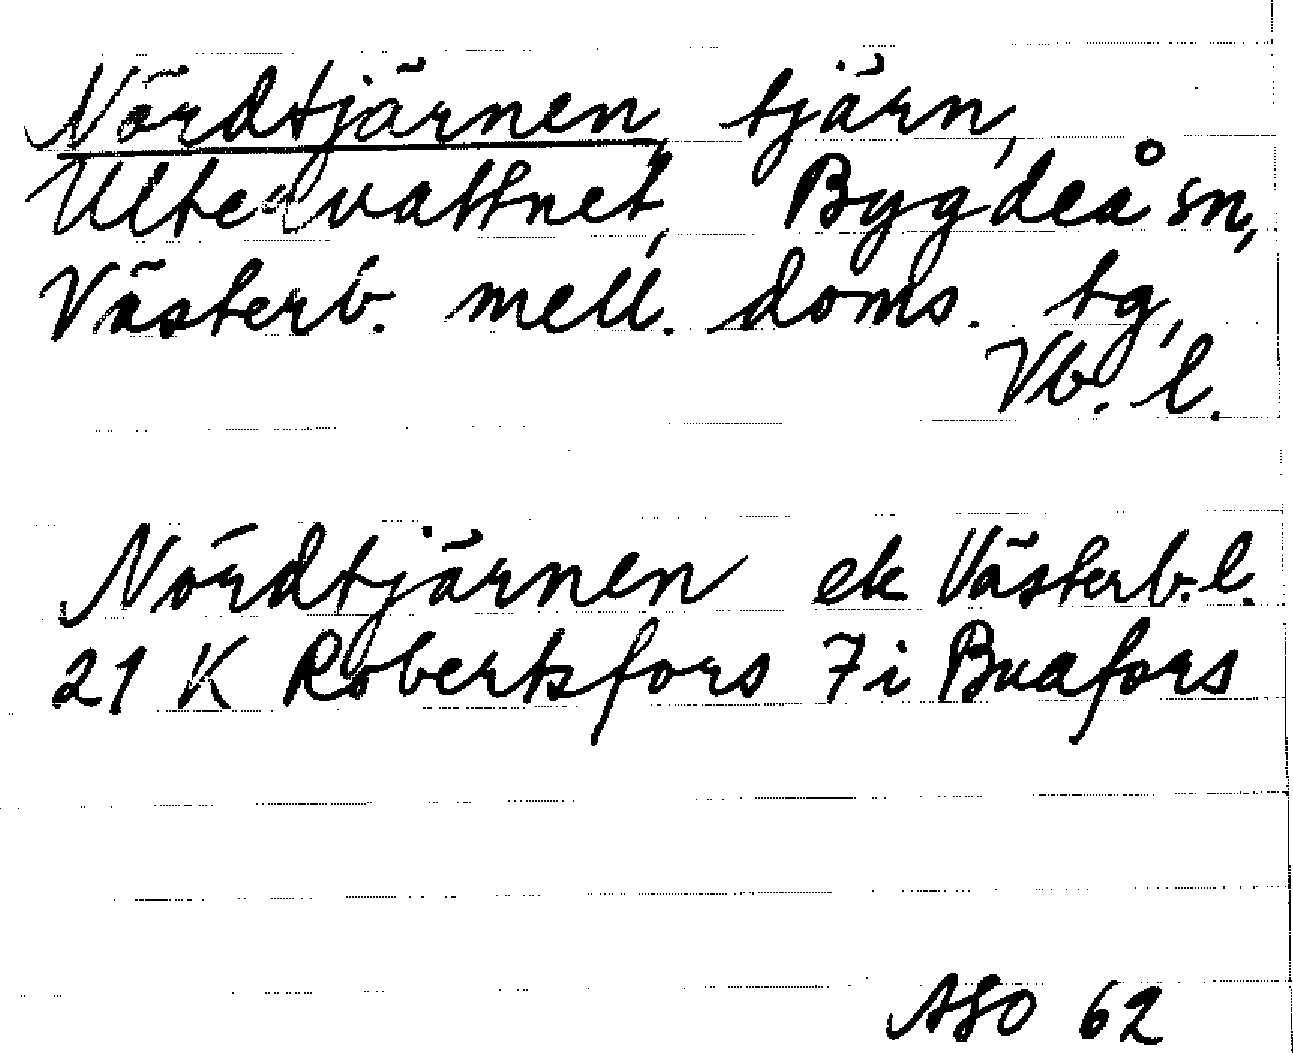 Nördtjärnen, tjärn,
Ultervattnet, Bygdeå sn,
Västerb. mell. doms. tg,
Vb. l.
Nördtjärnen ek Västerb. l.
21 K Robertsfors 7 i Buafors
ASO 62